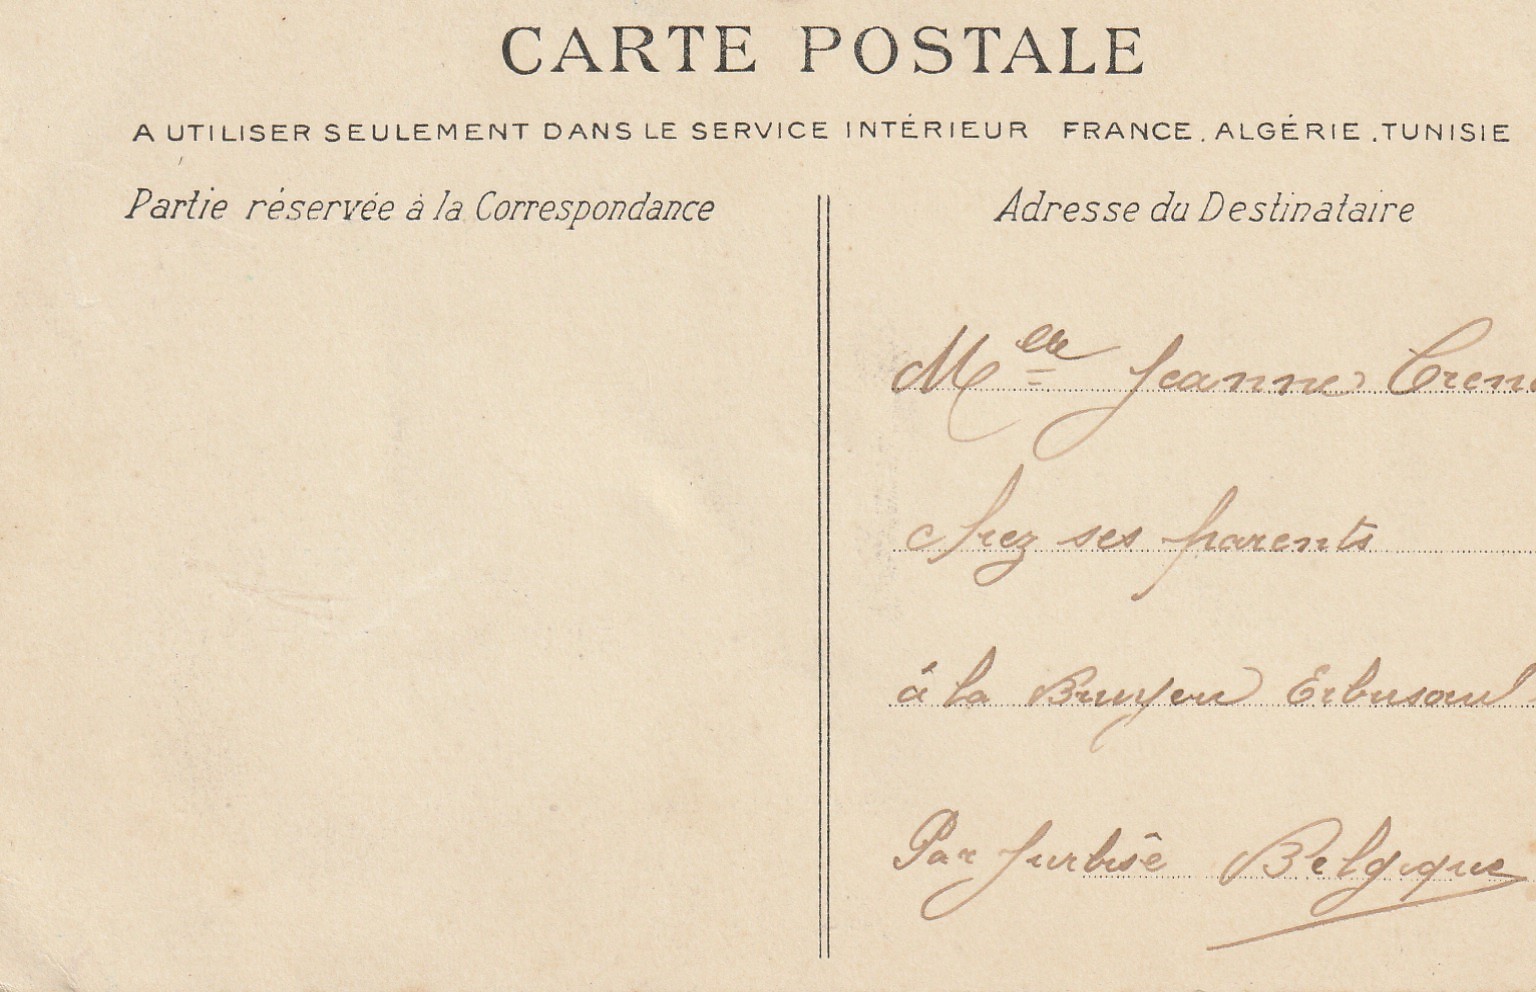 CARTE POSTALE
A UTILISER SEULEMENT DANS LE SERVICE INTÉRIEUR FRANCE. ALGÉRIE. TUNISIE
Partie réservée à la Correspondance
Adresse du Destinataire
Melle Jeanne
chez ses parents
à la Bruyère Erbisoeul
Par Jurbise Belgique